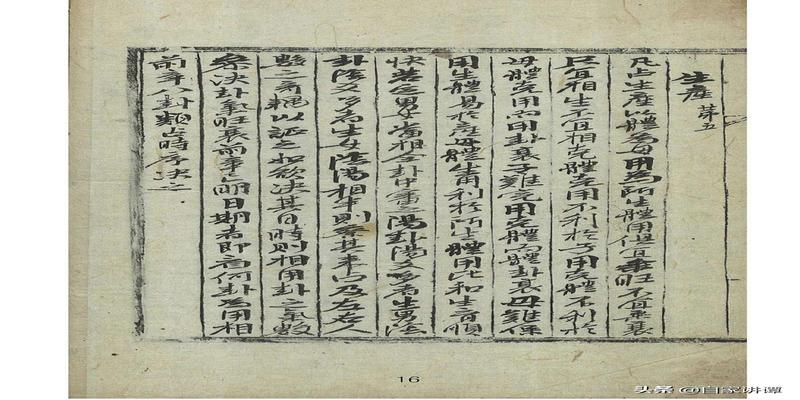 生產 第五
凡占生產以體為母用為所生體用俱宜乘旺不宜乘衰
只宜相生不宜相克體克用不利於子用克體不利於
母體克用而用卦衰子難完用克體而體卦衰母難保
用生體易於產母體生用利於所生體用比和生育順
快若 男女當 卦中審之陽卦陽爻多者生男陰
卦陰爻多者生女陰陽相半則察其來 及左右人
數之奇耦以証之如欲決其日時則相用卦之氣數
參決卦氣旺衰而事之 日期者即看何卦為用相
前章八卦類占時序決之
16
头条 @自家讲谭